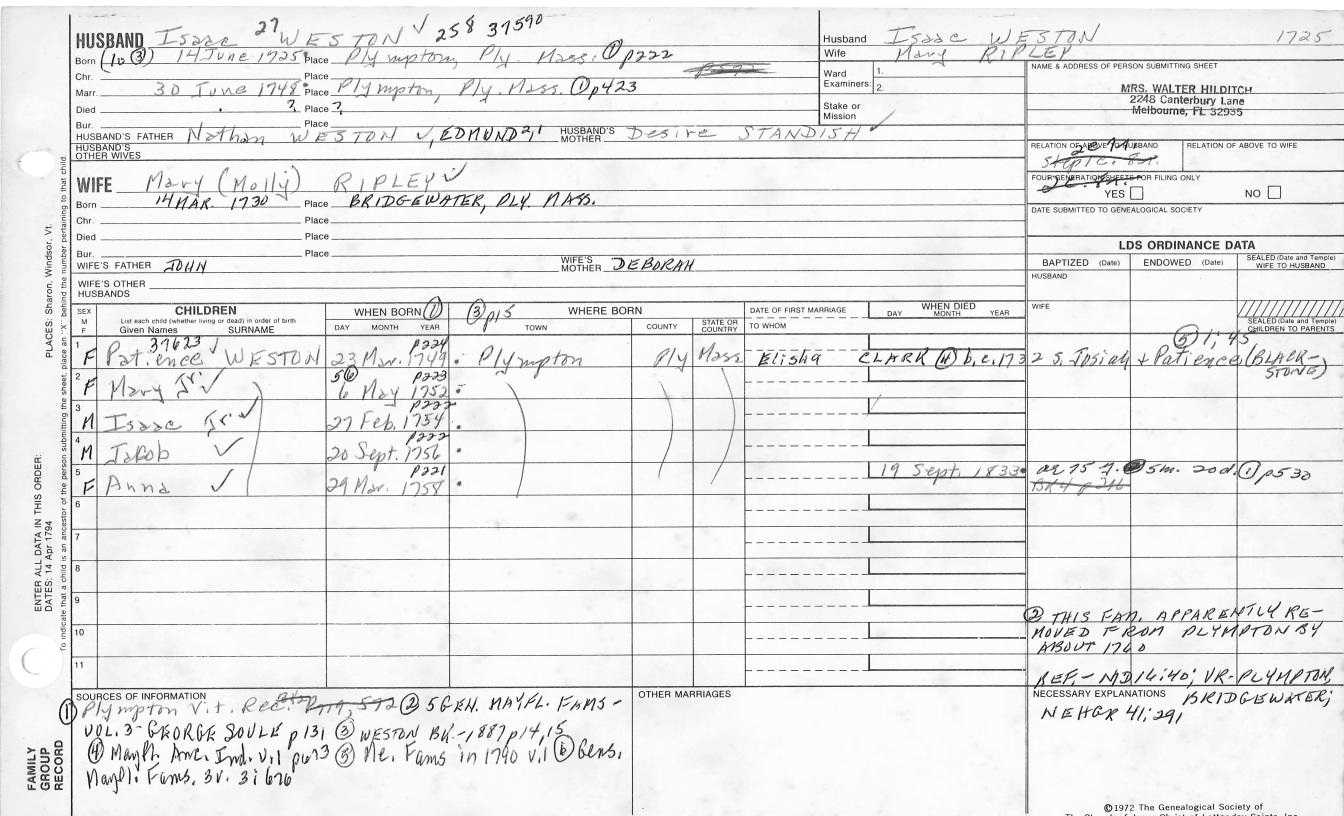 HUSBAND Isaac 27 WESTON ✓ 258 37590
Born (10 ③) 14 June 1725 Place Plympton, Ply. Mass. ① p222
Chr. Place
Marr. 30 June 1748 Place Plympton, Ply. Mass. ① p423
Died ? Place ?
Bur. Place
HUSBAND'S FATHER Nathan WESTON ✓, EDMUND 2, 1 HUSBAND'S MOTHER Desire STANDISH ✓
HUSBAND'S OTHER WIVES
WIFE Mary (Molly) RIPLEY ✓
Born 14 MAR. 1730 Place BRIDGEWATER, PLY. MASS.
Chr. Place
Died Place
Bur. Place
WIFE'S FATHER JOHN WIFE'S MOTHER DEBORAH
WIFE'S OTHER HUSBANDS
Husband Isaac WESTON 1725
Wife Mary RIPLEY
Ward Examiners: 1.
2.
Stake or Mission
NAME & ADDRESS OF PERSON SUBMITTING SHEET
MRS. WALTER HILDITCH
2248 Canterbury Lane
Melbourne, FL 32935
RELATION OF ABOVE TO HUSBAND RELATION OF ABOVE TO WIFE
FOUR GENERATION SHEETS FOR FILING ONLY
YES NO
DATE SUBMITTED TO GENEALOGICAL SOCIETY
LDS ORDINANCE DATA
BAPTIZED (Date) ENDOWED (Date) SEALED (Date and Temple) WIFE TO HUSBAND
HUSBAND
WIFE
SEALED (Date and Temple) CHILDREN TO PARENTS
SEX M F
CHILDREN
List each child (whether living or dead) in order of birth
Given Names SURNAME
WHEN BORN ①
DAY MONTH YEAR
③ p15 WHERE BORN
TOWN COUNTY STATE OR COUNTRY
DATE OF FIRST MARRIAGE
TO WHOM
WHEN DIED
DAY MONTH YEAR
37623 ✓ p224 ⑤ 1; 45
1 F Patience WESTON 23 Mar. 1749 Plympton Ply Mass Elisha CLARK ④ b,c,1732 S. Josiah & Patience (BLACK-STONE)
5⑥ p223
2 F Mary Jr. ✓ 6 May 1752
p222
3 M Isaac Jr ✓ 27 Feb. 1754
p222
4 M Jacob ✓ 20 Sept. 1756
p221
5 F Anna ✓ 29 Mar. 1758 19 Sept. 1833 ae 75 y. 5m. 20d. ① p530
6
7
8
9
10
11
② THIS FAM. APPARENTLY RE-
MOVED FROM PLYMPTON BY
ABOUT 1760
REF.- MD 14:40; VR-PLYMPTON,
BRIDGEWATER;
NECESSARY EXPLANATIONS
NEHGR 41:291
SOURCES OF INFORMATION
① Plympton V.t. Rec. ② 5 GEN. MAYFL. FAMS -
VOL. 3- GEORGE SOULE p 131 ③ WESTON BK.-, 1887 p14, 15
④ Mayfl. Anc. Ind. v.1 p673 ⑤ Me. Fams in 1790 v.1 ⑥ Gens.
Mayfl. Fams. 3v. 3; 676
OTHER MARRIAGES
©1972 The Genealogical Society of
PLACES: Sharon, Windsor, Vt.
To indicate that a child is an ancestor of the person submitting the sheet, place an "X" behind the number pertaining to that child.
ENTER ALL DATA IN THIS ORDER:
DATES: 14 Apr 1794
FAMILY GROUP RECORD